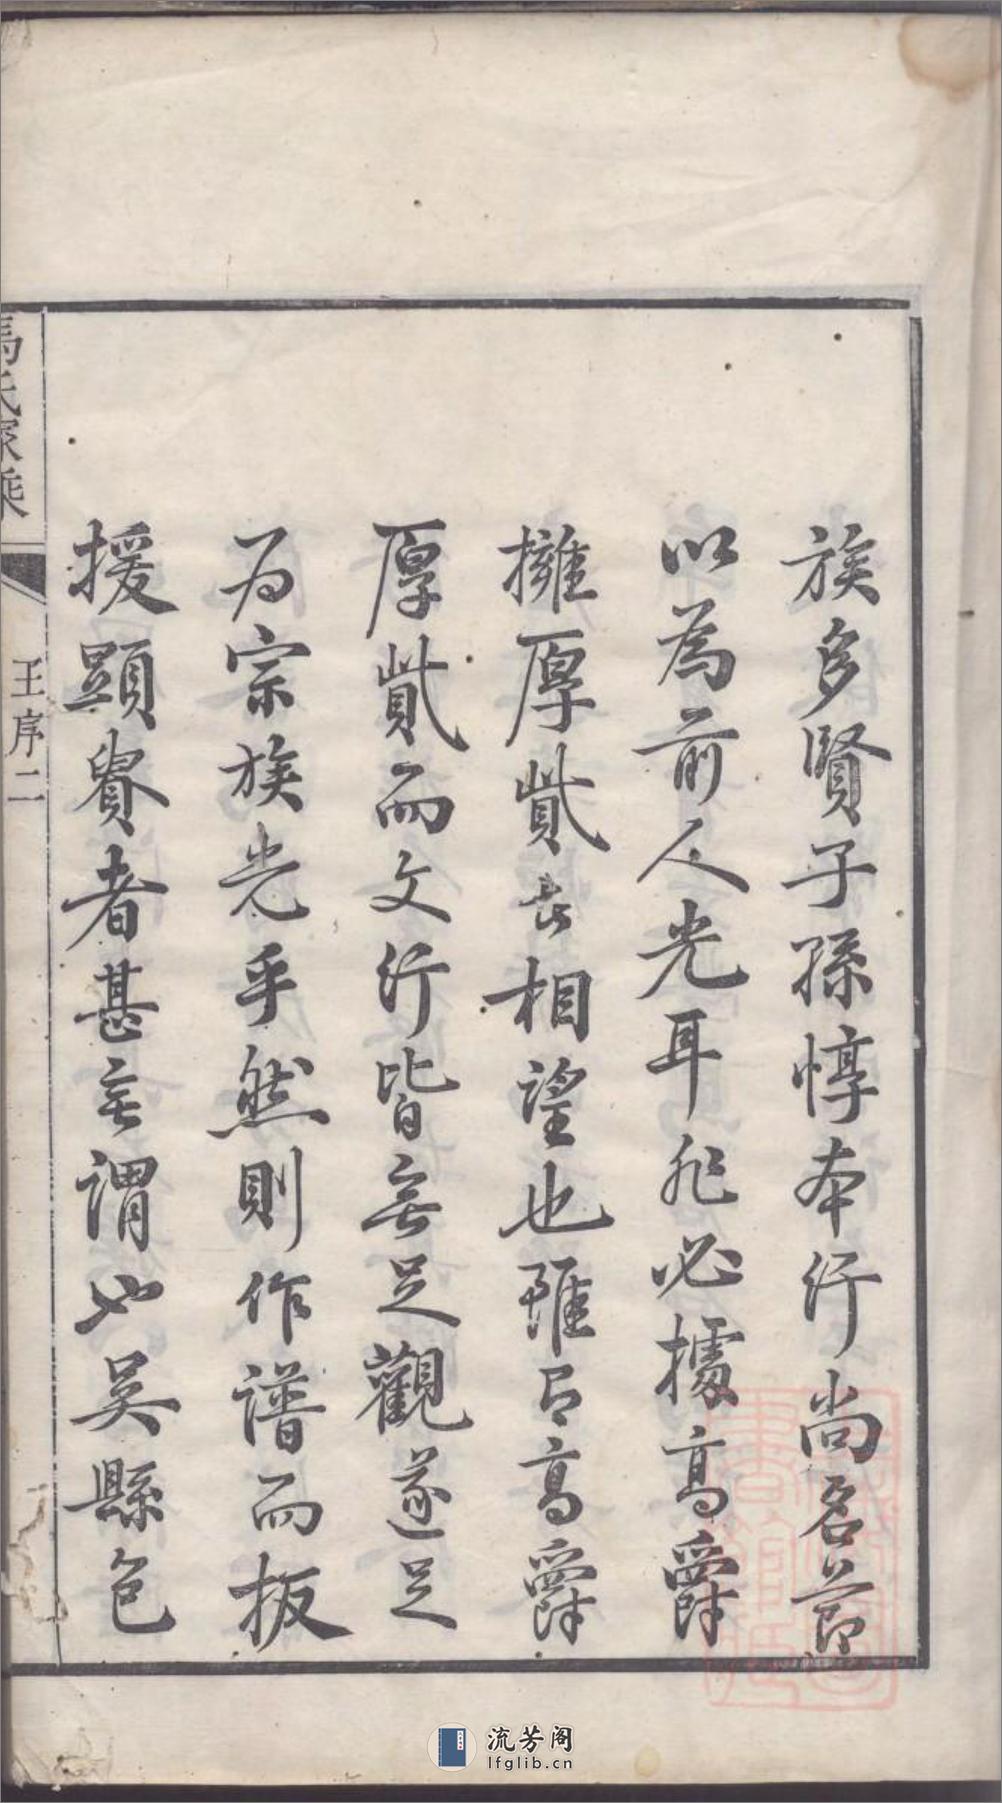 族多賢子孫惇本行尚名節
以為前人光耳非必據高爵
擁厚貲相望也雖高爵
厚貲而文行皆無足觀遂足
为宗族光乎然則作譜而扳
援顯貴者甚無謂也吳縣邑
氏家乘
王序二
流芳阁
lfglib.cn